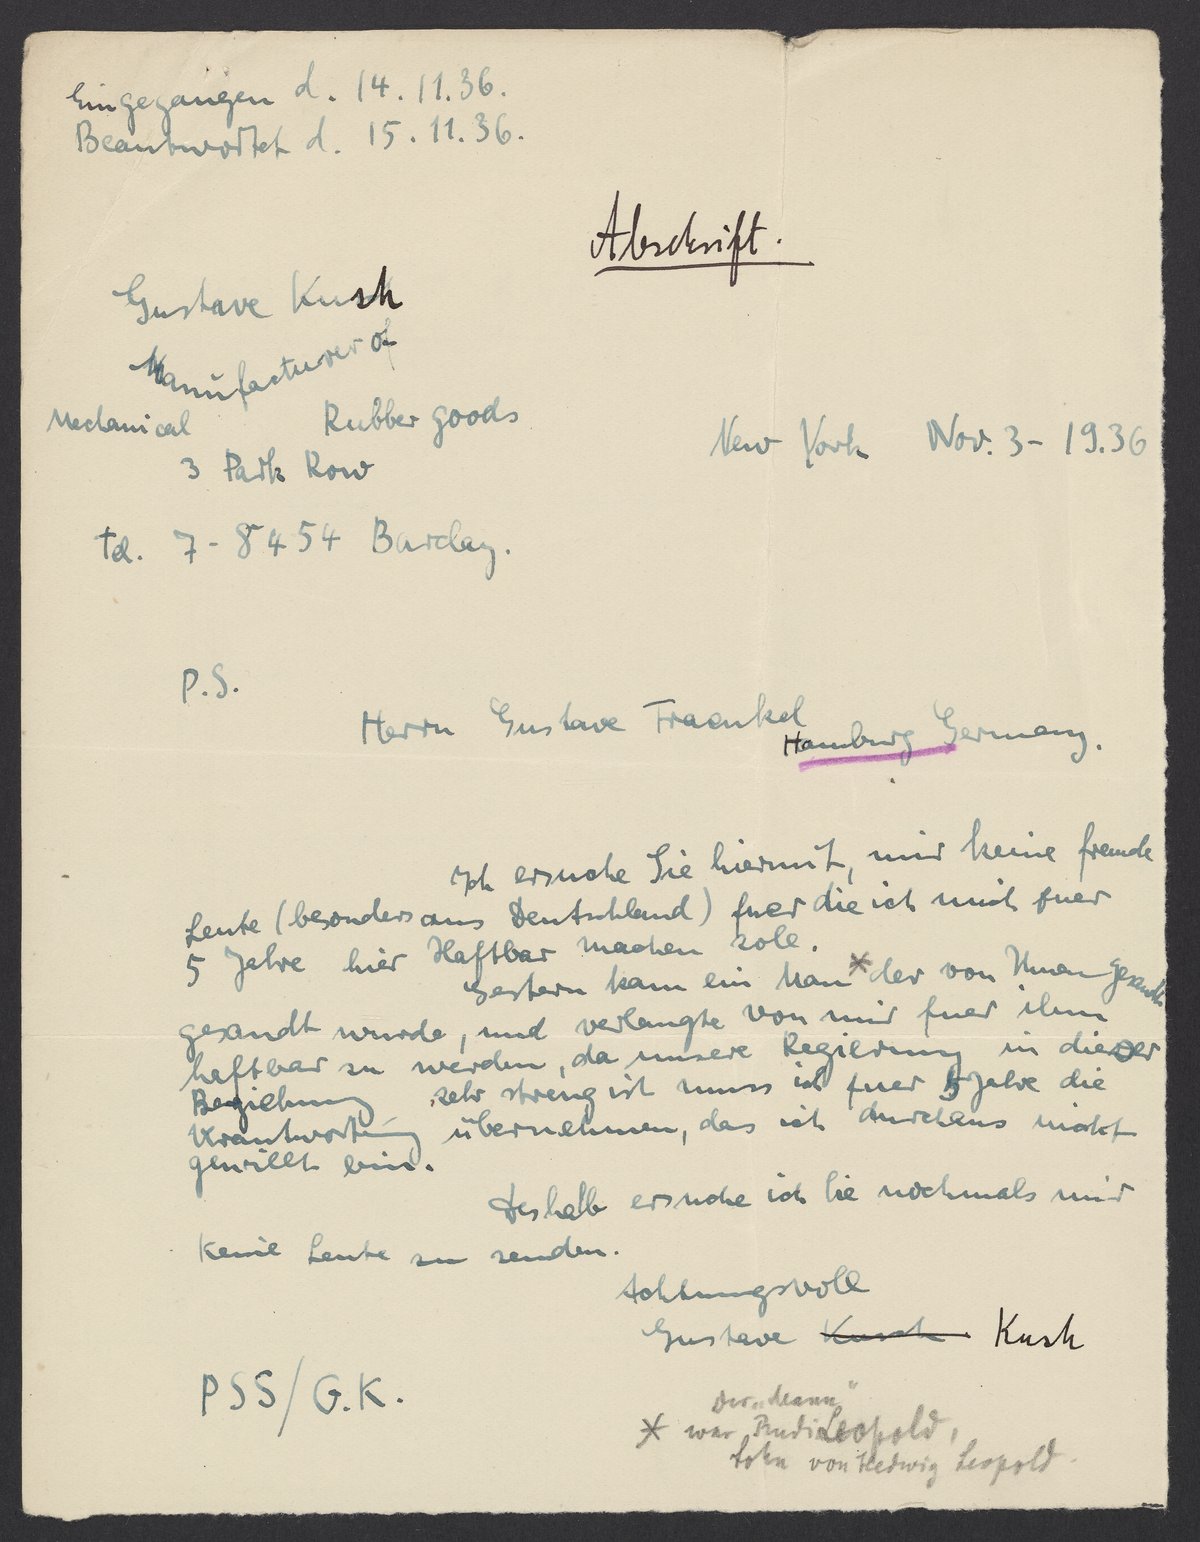 Eingegangen d. 14.11.36.
Beantwortet d. 15.11.36.
Abschrift.
Gustave Kush
Manufacturer of
Mechanical Rubber goods
3 Park Row
New York Nov. 3 - 19.36
tel. 7-8454 Barclay.
P.S.
Herrn Gustave Fraenkel
Hamburg Germany.
Ich ersuche Sie hiermit, mir keine fremde
Leute (besonders aus Deutschland) fuer die ich mich fuer
5 Jahre hier Haftbar machen sole.
Gestern kam ein Man * der von Ihnen gesandt
gesandt wurde, und verlangte von mir fuer ihm
haftbar zu werden, da unsere Regierung in dieser
Beziehung sehr streng ist muss ich fuer 5 Jahre die
Verantwortung übernehmen, das ich durchaus nicht
gewillt bin.
Deshalb ersuche ich Sie nochmals mir
keine Leute zu senden.
Achtungsvoll
Gustave Kusch Kush
PSS/G.K.
Der „Mann"
* war Rudi Leopold,
Sohn von Hedwig Leopold.